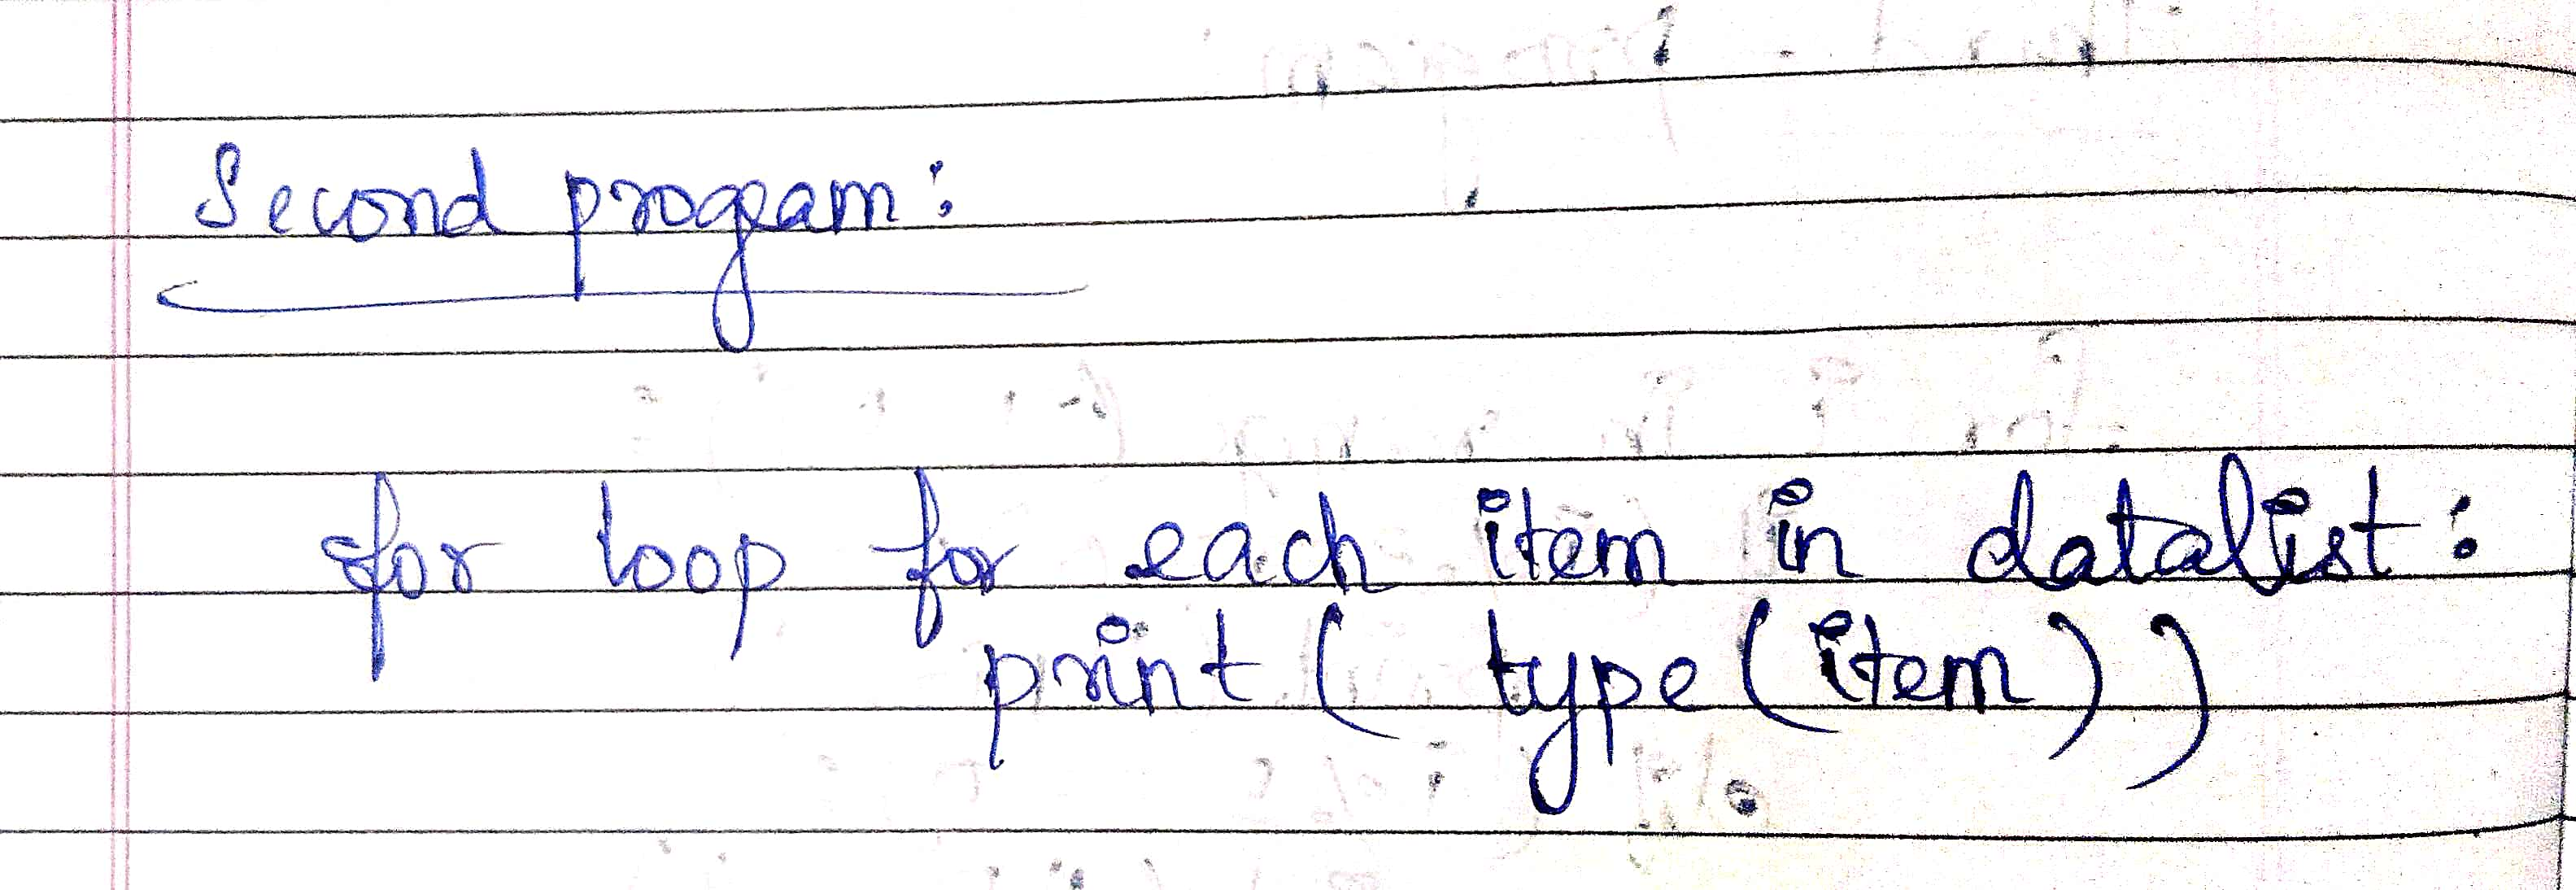 Second program:
for loop for each item in datalist:
print ( type (item))